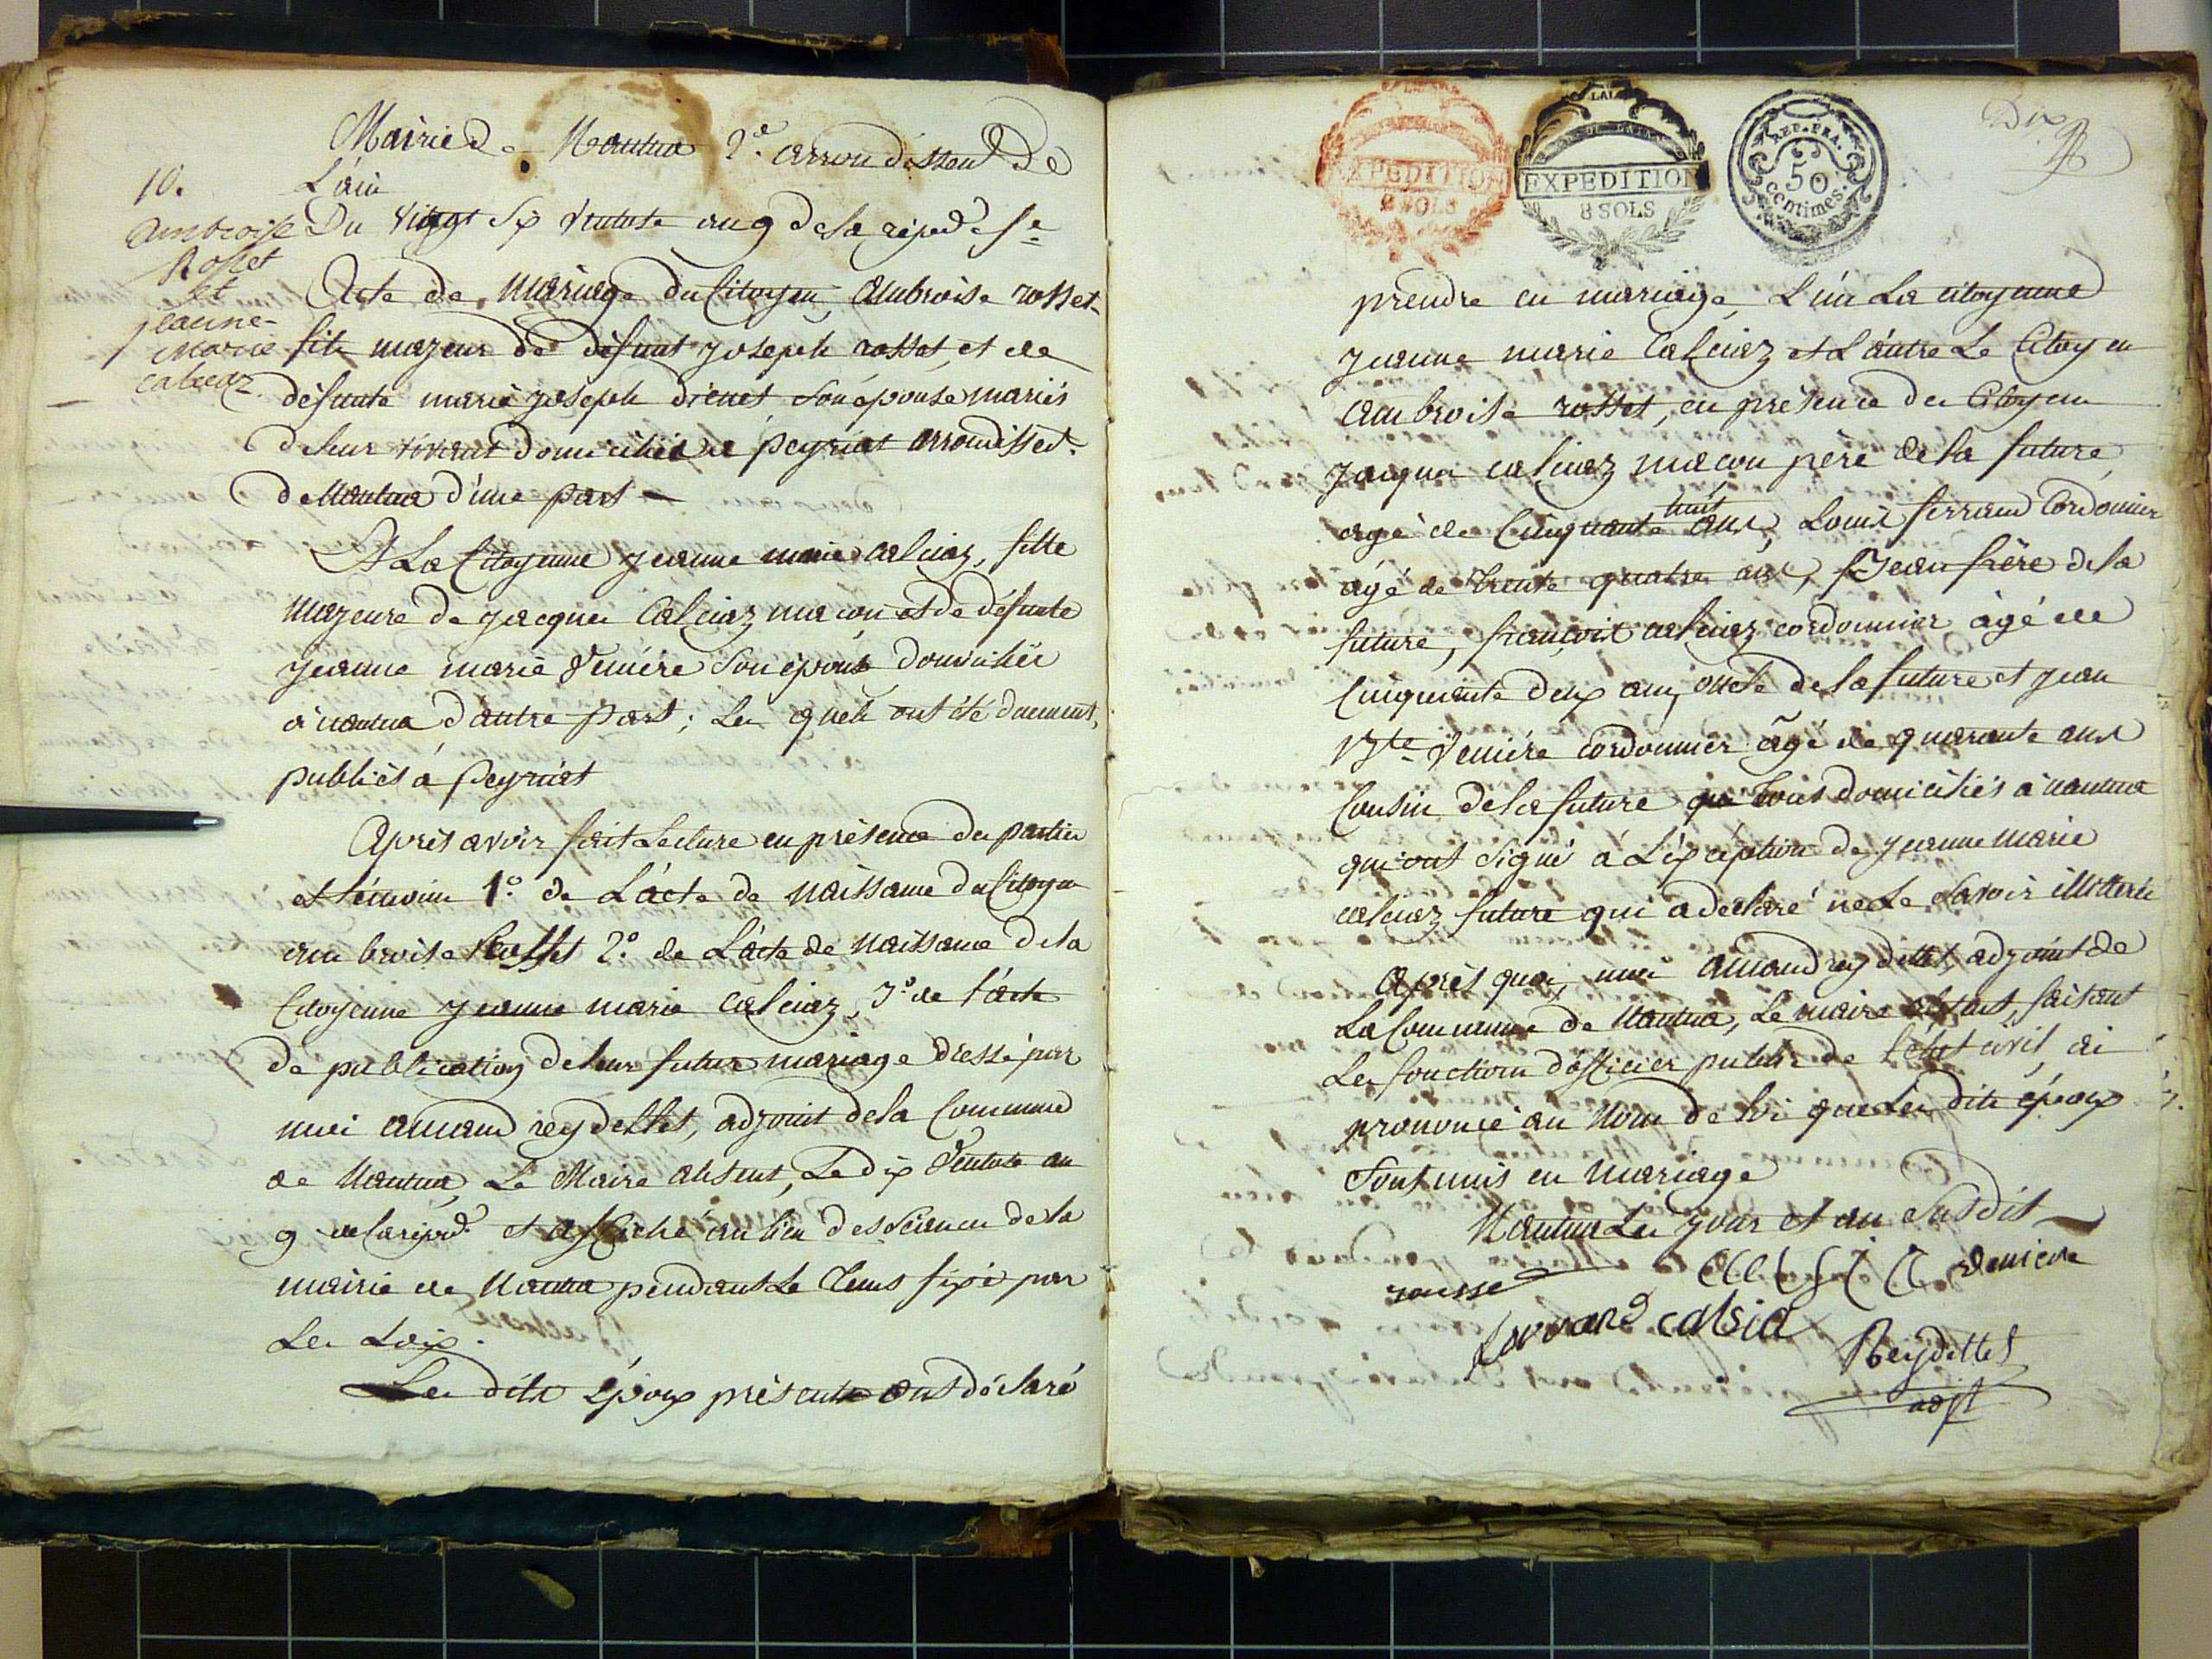 Mairie de Nantua 2e. arrondissent De
L'ain
10.
ambroise
Rosset
et
jeanne-
Marie
calciaz
Du vingt Six Ventose an 9 de la repud fse
Acte de Mariage du Citoyen Ambroise rosset
fils majeur de défunt joseph rosset et de
défunte marie joseph son épouse mariés
de leur vivant domiciliés a peyriat arrondisset.
de Nantua d'une part
A La Citoyenne jeanne marie calciaz, fille
majeure de jacques Calciaz macon et de défunte
jeanne marie Deniére son épouse domiciliée
à nantua d'autre part; Les quels ont été duement,
publiés à peyriat
Après avoir fait Lecture en présence des parties
et témoins 1o. de L'acte de naissance du Citoyen
ambroise Rosset 2o. de L'acte de naissance de la
Citoyenne jeanne marie calciaz, 3o de l'acte
de publication de leur futur mariage dressé par
moi amand reydellet, adjoint de la Commune
de Nantua, Le Maire absent, Le dix Ventose an
9 de la repud. et affiché au lieu des séances de la
mairie de Nantua pendant Le tems fixé par
Les Loix.
Les dits époux présents ont déclaré
EXPEDITION
8 SOLS
EXPEDITION
8 SOLS
REP. FRA.
50
centimes.
Dix
prendre en mariage, L'un La citoyenne
jeanne marie Calciaz et L'autre Le Citoyen
ambroise rosset, en présence des Citoyens
jacques calciaz macon père de la future,
agé de Cinquante huit ans, Louis ferrand Cordonnier
âgé de trente quatre ans, Beau frère de la
future, françois calciaz cordonnier âgé de
Cinquante deux ans, oncle de la future et jean
Bte Deniére cordonnier âgé de quarante ans
Cousin de la future tous domiciliés à nantua
qui ont signé à L'exception de jeanne marie
calciaz future qui a déclaré ne Le savoir illitterée
Après quoi, moi amand reydellet, adjoint de
La Commune de Nantua, Le maire absent, faisant
Les fonctions d'officier public de L'état civil, ai
prononcé au Nom de loi que Les dits époux
Sont unis en Mariage
Nantua Les jour et an susdit
rousset deniere
calsia
Reydellet
adjt